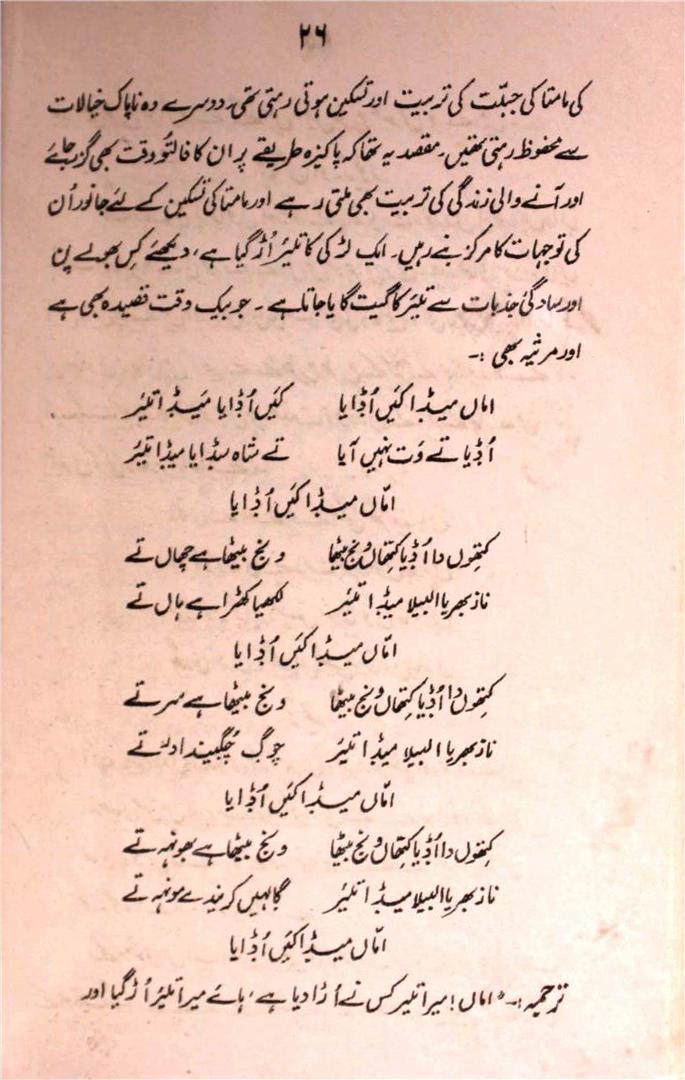 ۲۶
کی مامتا کی جبلّت کی تربیت اور تسکین ہوتی رہتی تھی۔ دوسرے وہ ناپاک خیالات
سے محفوظ رہتی تھیں۔ مقصد یہ تھا کہ پاکیزہ طریقے پر ان کا فالتُو وقت بھی گزر جائے
اور آنے والی زندگی کی تربیت بھی ملتی رہے اور مامتا کی تسکین کے لئے جانور اُن
کی توجہات کا مرکز بنے رہیں۔ ایک لڑکی کا تلیئر اُڑ گیا ہے، دیکھئے کِس بھولے پن
اور سادگیٔ جذبات سے تلیئر کا گیت گایا جاتا ہے۔ جو بیک وقت قصیدہ بھی ہے
اور مرثیہ بھی :۔
اماں میڈا کَیں اُڈایا کَیں اُڈایا مَیڈا تلیئر
اُڈیا تے وَت نہیں آیا تے شاہ سڈایا میڈا تلیئر
امّاں میڈا کَیں اُڈایا
کِتھوں دا اُڈیا کِتھاں ونج بیٹھا ونج بیٹھا ہے چھاں تے
ناز بھریا البیلا میڈا تلیئر لکھیا کھڑا ہے ہاں تے
امّاں میڈا کَیں اُڈایا
کِتھوں دا اُڈیا کِتھاں ونج بیٹھا ونج بیٹھا ہے سر تے
ناز بھریا البیلا میڈا تلیئر چوگ چُگیندا تے
امّاں میڈا کَیں اُڈایا
کِتھوں دا اُڈیا کِتھاں ونج بیٹھا ونج بیٹھا ہے بھونہہ تے
ناز بھریا البیلا میڈا تلیئر گالہیں کریندے مونہہ تے
امّاں میڈا کَیں اُڈایا
ترجمہ :۔ " اماں! میرا تلیر کس نے اُڑا دیا ہے، ہائے میرا تلیئر اُڑ گیا اور